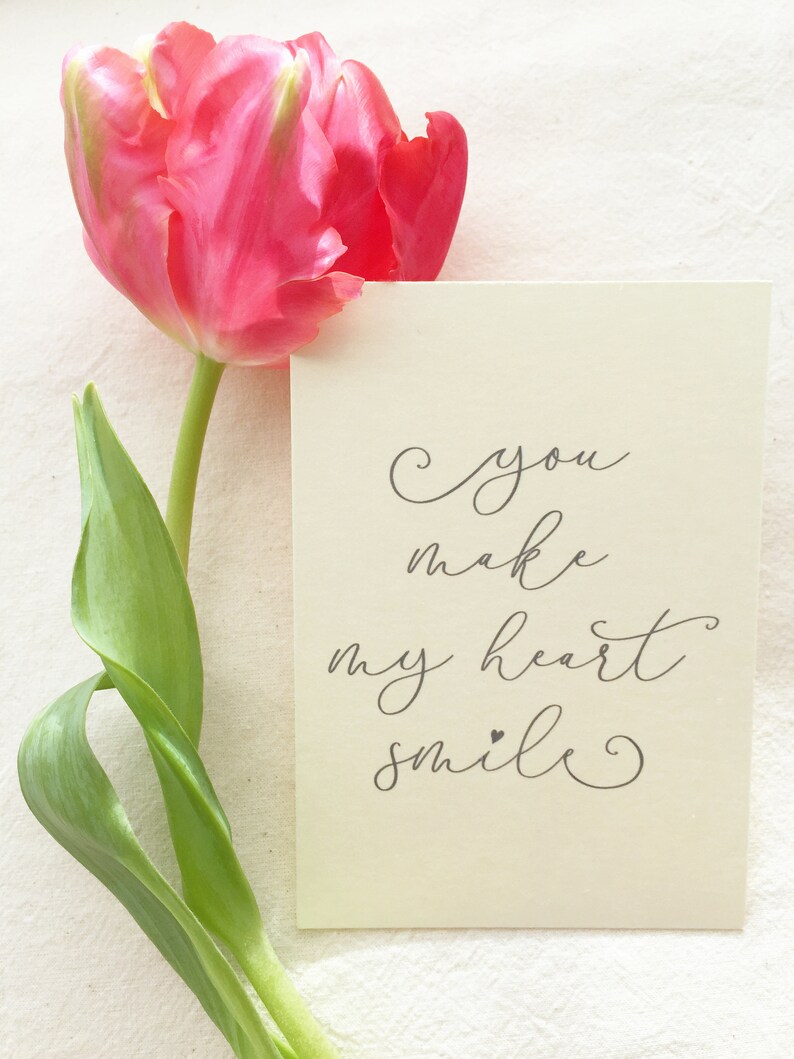 you
make
my heart
smile